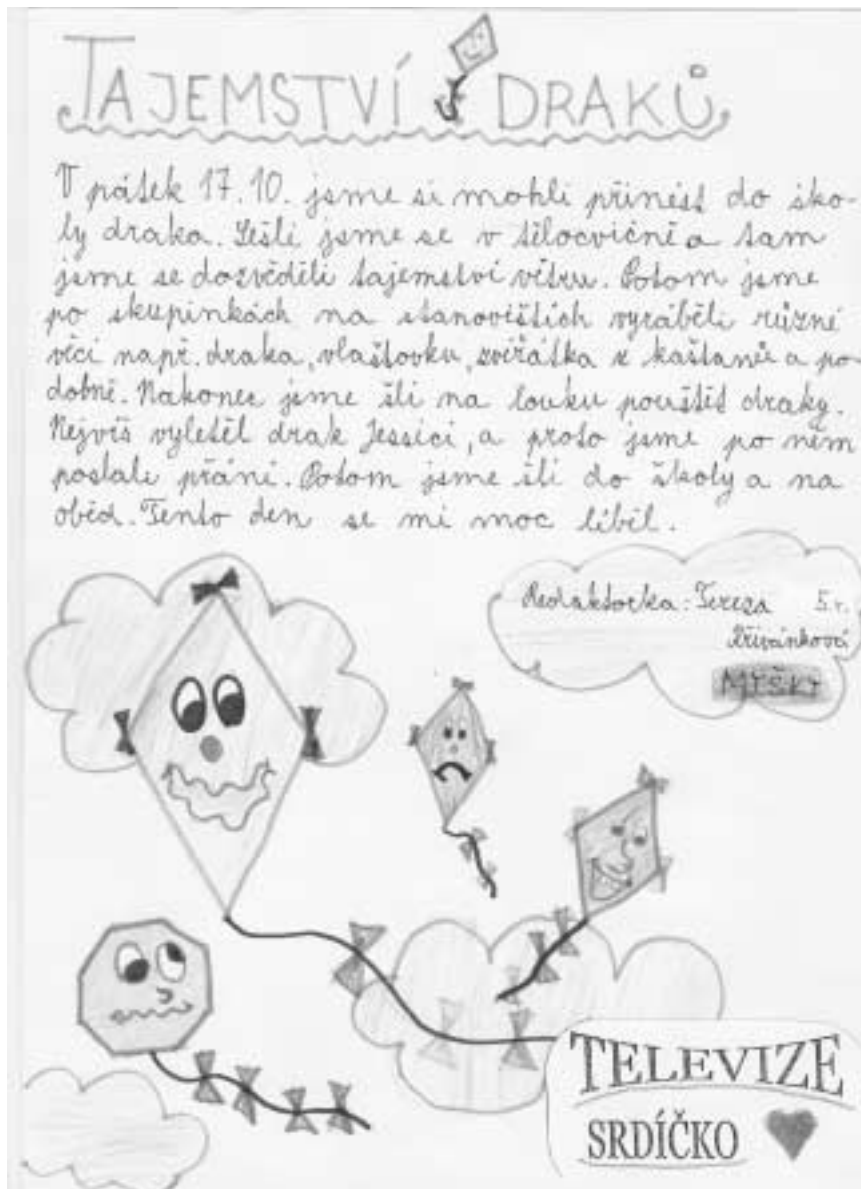 TAJEMSTVÍ DRAKŮ
V pátek 17.10. jsme si mohli přinést do ško-
ly draka. Sešli jsme se v tělocvičně a tam
jsme se dozvěděli tajemství větru. Potom jsme
po skupinkách na stanovištích vyráběli různé
věci např. draka, vlaštovku, zvířátka z kaštanů a po-
dobně. Nakonec jsme šli na louku pouštět draky.
Nejvíš vyletěl drak Jessici, a proto jsme po něm
poslali přání. Potom jsme šli do školy a na
oběd. Tento den se mi moc líbil.
Redaktorka: Tereza 5.r.
Křivánková
MYŠKY
TELEVIZE
SRDÍČKO